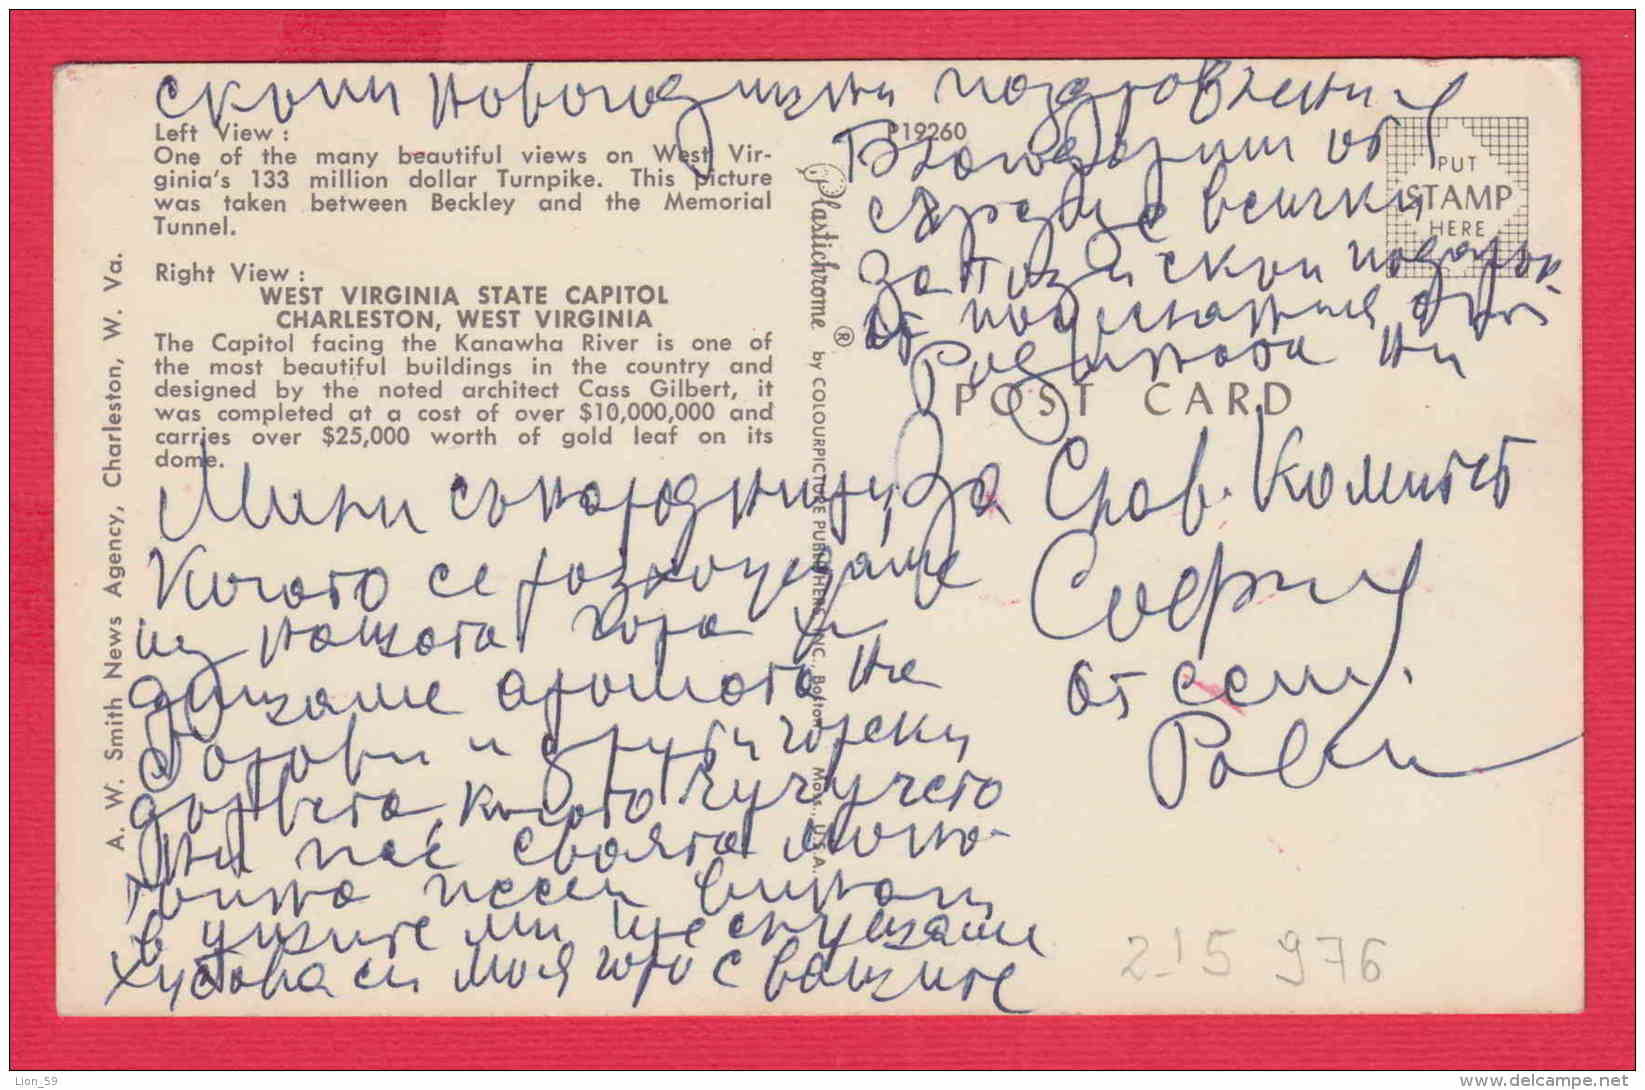 скъпи новогодишни поздравления
Left View :
One of the many beautiful views on West Vir-
ginia's 133 million dollar Turnpike. This picture
was taken between Beckley and the Memorial
Tunnel.
Right View :
WEST VIRGINIA STATE CAPITOL
CHARLESTON, WEST VIRGINIA
The Capitol facing the Kanawha River is one of
the most beautiful buildings in the country and
designed by the noted architect Cass Gilbert, it
was completed at a cost of over $10,000,000 and
carries over $25,000 worth of gold leaf on its
dome.
A. W. Smith News Agency, Charleston, W. Va.
P19260
Plastichrome ® by COLOURPICTURE PUBLISHERS, INC., Boston, Mass., U.S.A.
PUT
STAMP
HERE
Благодарим от
сърце всички
за този скъп подарък
от
Родината ни
POST CARD
Мили сънародници, За Слав. Комитет
Когато се разхождаме
из нашата гора и
дишаме аромата на
борови и други горски
дървета, когато чучучето
ни пее своята моно-
тонна песен винаги
в ушите ми ще слушаме
хубавата си моя гора с вашите
София
от сем.
2 15 976
Lion_59
www.delcampe.net